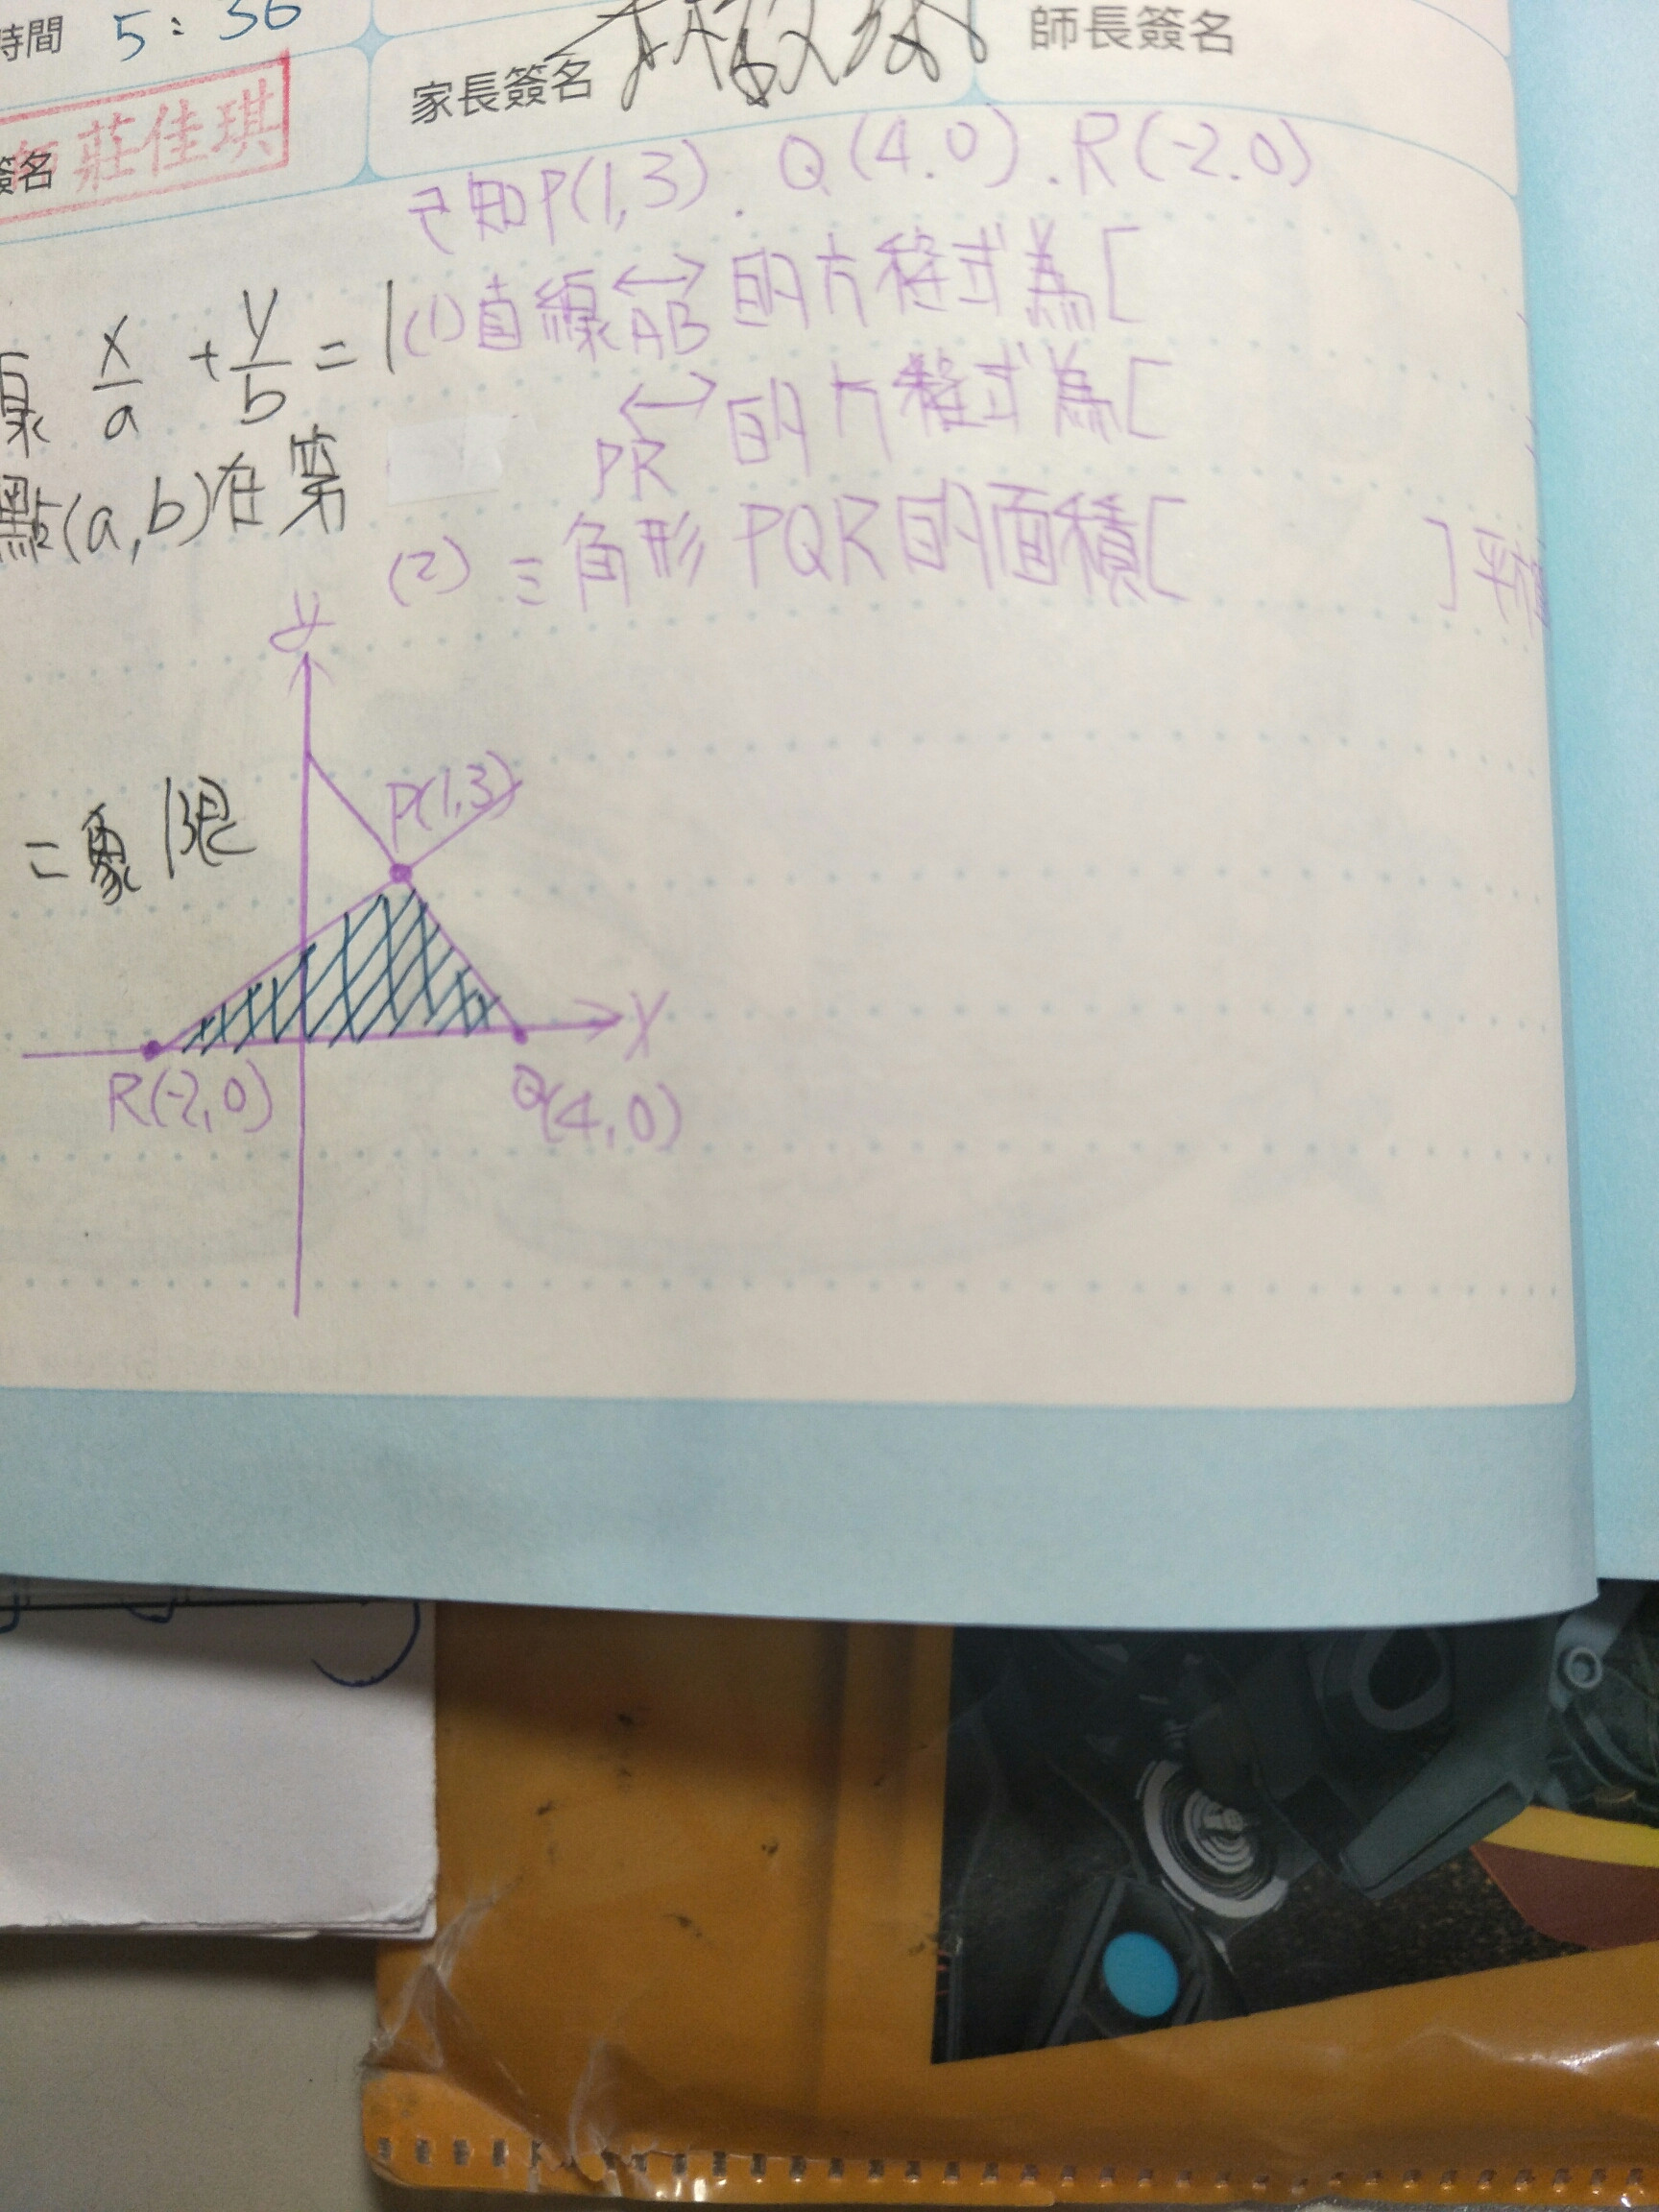 時間 5:36
家長簽名
師長簽名
簽名
師 莊佳琪
已知P(1,3). Q(4.0).R(-2.0)
(1)直線AB的方程式為[
PR的方程式為[
(2)三角形PQR的面積[ ]平
線 x/a + y/b = 1
點(a,b)在第
二象限
y
P(1,3)
X
R(-2,0)
Q(4,0)